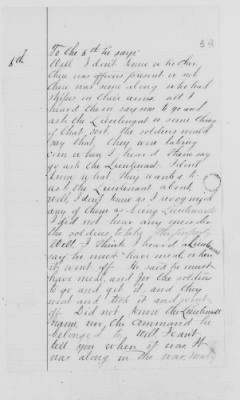 52
6th
To the 6th he says
Well I don't know whether
there was officers present or not
there was some along who had
stripes on their arms. and I
heard them say some to go and
ask the Lieutenant or some thing
of that sort. The soldiers would
say that, they were taking
corn or hay I heard them say
go ask the Lieutenant. I don't
know what they wanted to
ask the Lieutenant about
Well, I don't know as I recognized
any of them as being Lieutenants
I did not hear any order
the soldiers to take
Well, I think I heard a Lieut
say he must have meat, or
it went off. He said he must
have meat, and for the soldiers
to go and get it, and they
went and took it and went
off Did not know the Lieutenants
name, nor the command he
belonged to. Well I can't
tell you when it was. It
was along in the war